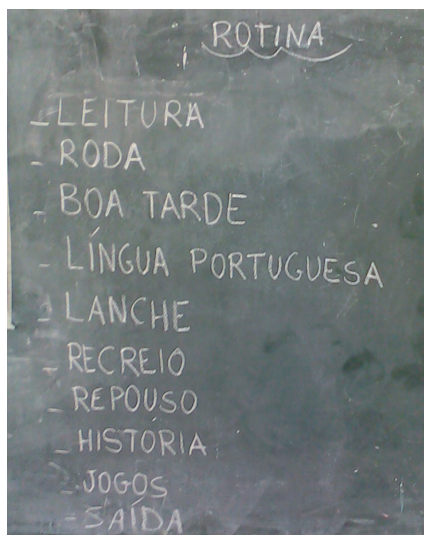 ROTINA
- LEITURA
- RODA
- BOA TARDE
- LÍNGUA PORTUGUESA
- LANCHE
- RECREIO
- REPOUSO
- HISTÓRIA
- JOGOS
- SAÍDA